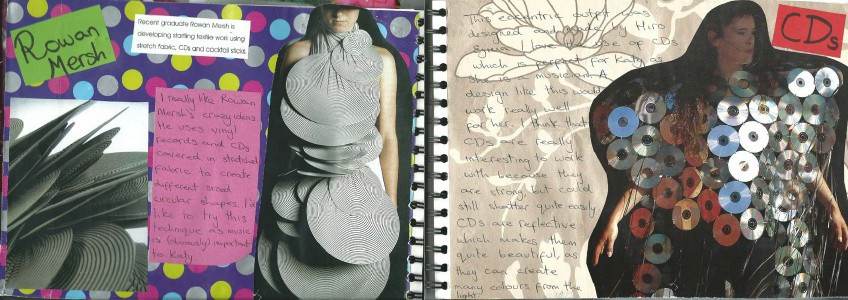 Rowan
Mersh
Recent graduate Rowan Mersh is
developing startling textile work using
stretch fabric, CDs and cocktail sticks.
I really like Rowan
Mersh's crazy ideas.
He uses vinyl
records and CDs
covered in stretched
fabric to create
different sized
circular shapes. I'd
like to try this
technique as music
is (obviously) important
to Katy
This eccentric outfit was
designed and made by Miro
I love use of CDs
which is perfect for Katy as
she is a musician. A
design like this would
work really well
for her. I think that
CDs are really
interesting to work
with because they
are strong, but could
still shatter quite easily
CDs are reflective
which makes them
quite beautiful, as
they can create
many colours from the
light.
CDs